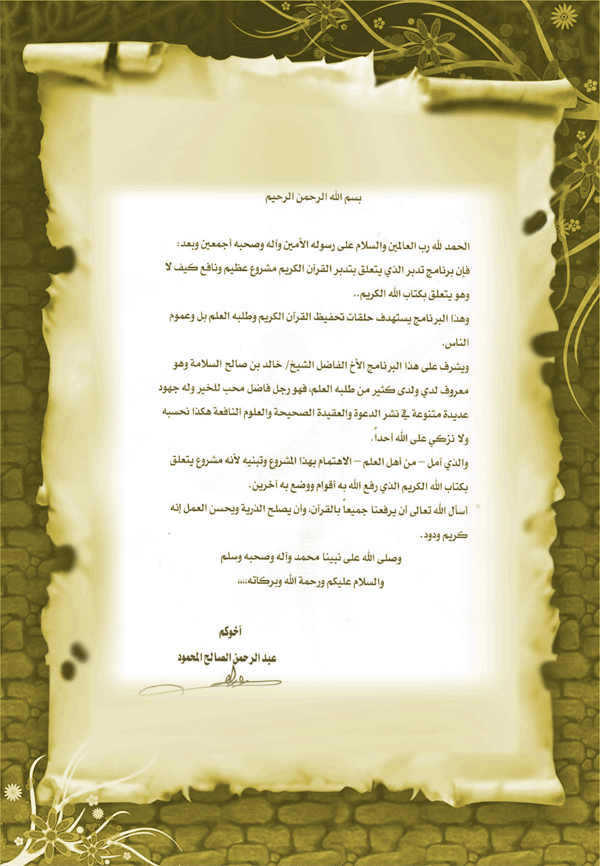 بسم الله الرحمن الرحيم
الحمد لله رب العالمين والسلام على رسوله الأمين وآله وصحبه أجمعين وبعد:
فإن برنامج تدبر الذي يتعلق بتدبر القرآن الكريم مشروع عظيم ونافع كيف لا
وهو يتعلق بكتاب الله الكريم..
وهذا البرنامج يستهدف حلقات تحفيظ القرآن الكريم وطلبه العلم بل وعموم
الناس.
ويشرف على هذا البرنامج الأخ الفاضل الشيخ/ خالد بن صالح السلامة وهو
معروف لدي ولدى كثير من طلبه العلم، فهو رجل فاضل محب للخير وله جهود
عديدة متنوعة في نشر الدعوة والعقيدة الصحيحة والعلوم النافعة هكذا نحسبه
ولا نزكي على الله أحداً.
والذي آمل – من أهل العلم – الاهتمام بهذا المشروع وتبنيه لأنه مشروع يتعلق
بكتاب الله الكريم الذي رفع الله به أقوام ووضع به آخرين.
أسأل الله تعالى أن يرفعنا جميعاً بالقرآن، وأن يصلح الذرية ويحسن العمل إنه
كريم ودود.
وصلى الله على نبينا محمد وآله وصحبه وسلم
والسلام عليكم ورحمة الله وبركاته،،،،
أخوكم
عبد الرحمن الصالح المحمود